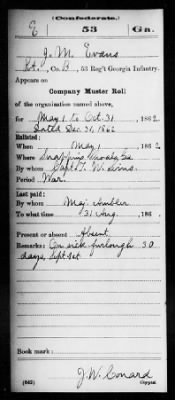 (Confederate.)
E 53 Ga.
J. M. Evans
Lt., Co. B, 53 Reg't Georgia Infantry.
Appears on
Company Muster Roll
of the organization named above,
for May 1 to Oct. 31, 1862.
Dated Dec. 31, 1862
Enlisted:
When May 1, 1862.
Where Snapping Shoals Ga
By whom Capt. T. W. Sims
Period War.
Last paid:
By whom Maj. Ambler
To what time 31 Aug, 186
Present or absent Absent
Remarks: On sick furlough 30
days, Sept 1st
Book mark:
J. W. Conard
(642) Copyist.